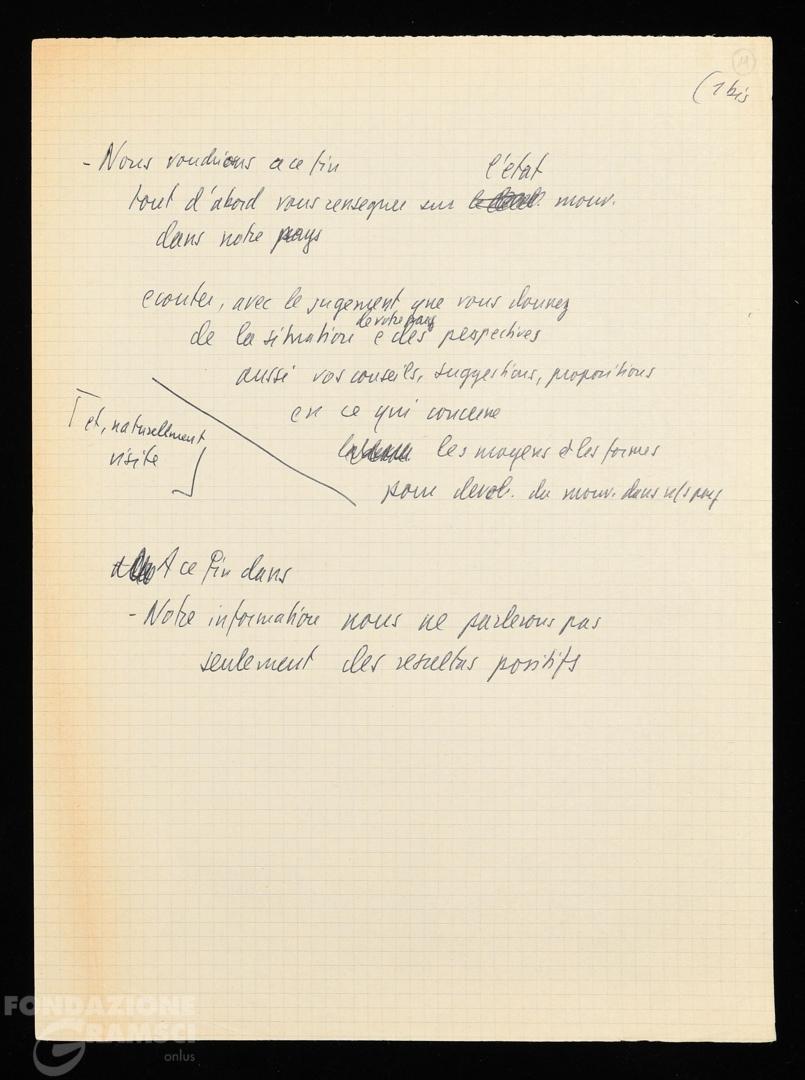 11
(1 bis
- Nous voudrions a ce fin
l'état
tout d'abord vous rensegner sur mouv.
dans notre pays
ecouter, avec le jugement que vous donnez
de votre pays
de la situation e des perspectives
aussi vos conseils, suggestions, propositions
en ce qui concerne
et, naturellement
visite
les moyens et les formes
pour devel. du mouv. dans pays
A ce fin dans
- Notre information nous ne parlerons pas
seulement des resultas positifs
FONDAZIONE
GRAMSCI
onlus